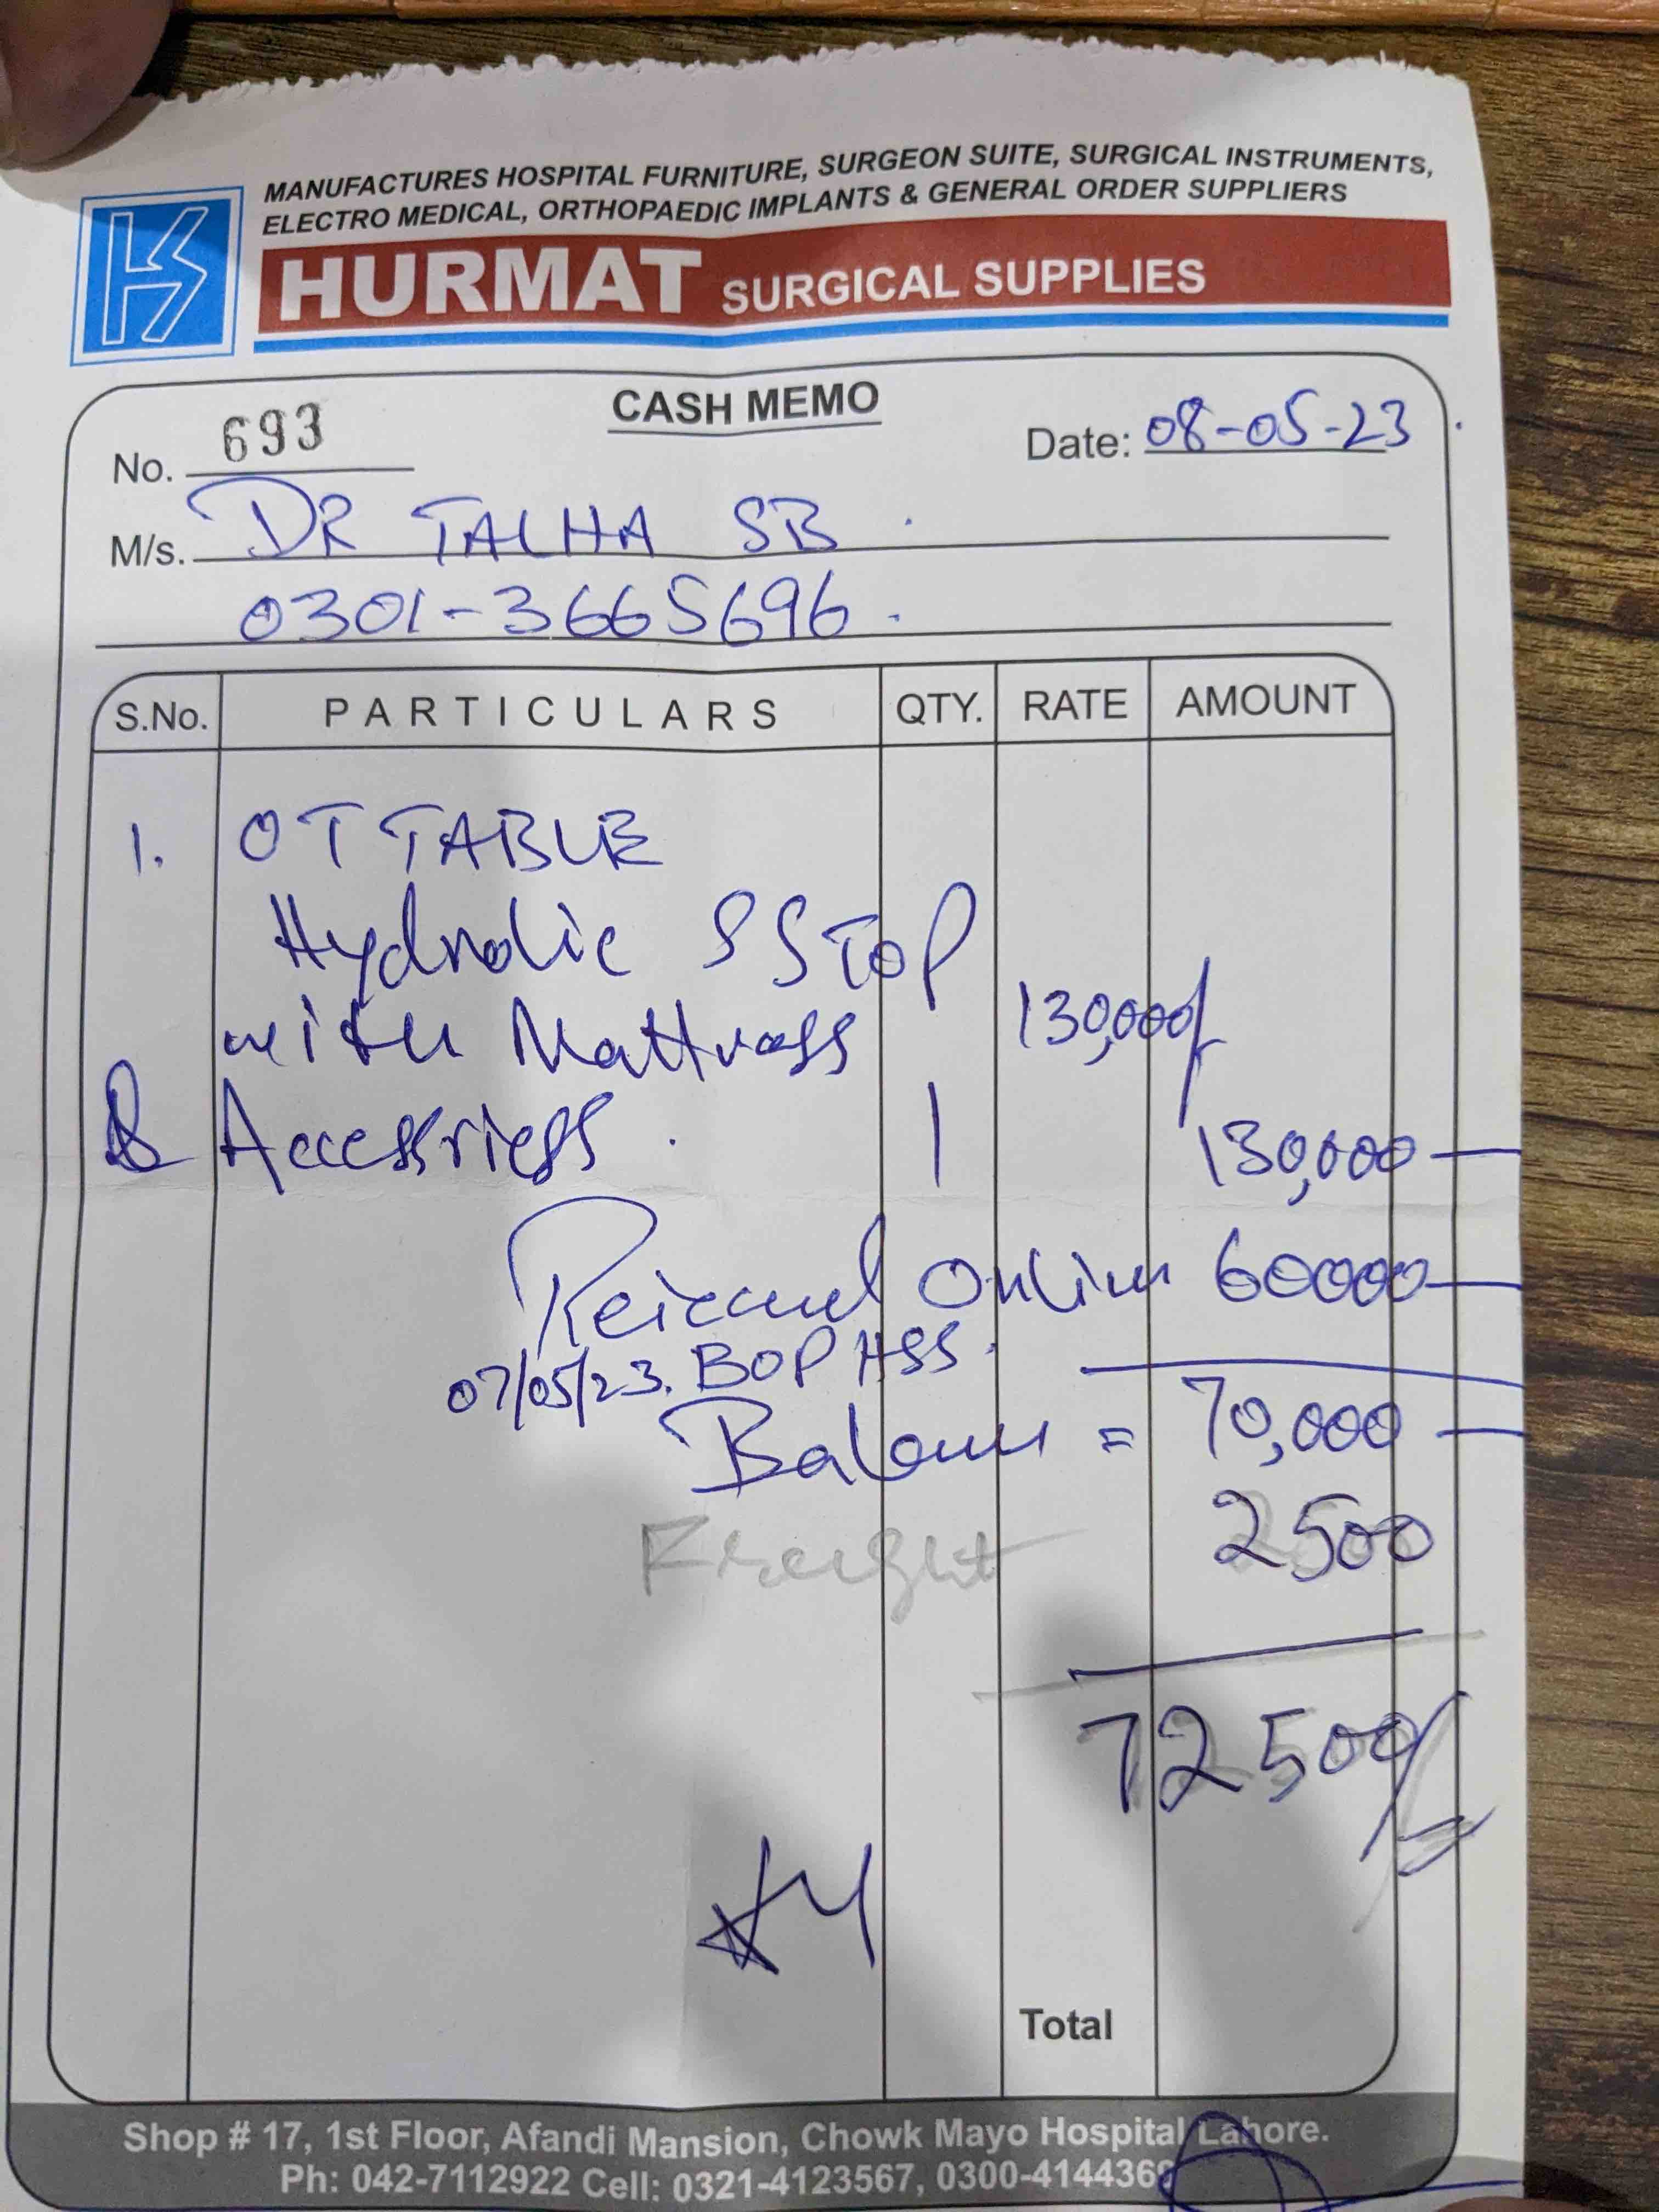 MANUFACTURES HOSPITAL FURNITURE, SURGEON SUITE, SURGICAL INSTRUMENTS,
ELECTRO MEDICAL, ORTHOPAEDIC IMPLANTS & GENERAL ORDER SUPPLIERS
HURMAT SURGICAL SUPPLIES
CASH MEMO
No. 693 Date: 08-05-23
M/s. DR TALHA SB
0301-3665696
S.No. PARTICULARS QTY. RATE AMOUNT
1. OT TABLE
Hydrolic SS TOP
with Mattress 130,000/
& Accessriess 1 130,000
Reicevd Online 60000
07/05/23. BOP HSS.
Balance = 70,000
Freight 2500
72500/
Total
Shop # 17, 1st Floor, Afandi Mansion, Chowk Mayo Hospital Lahore.
Ph: 042-7112922 Cell: 0321-4123567,